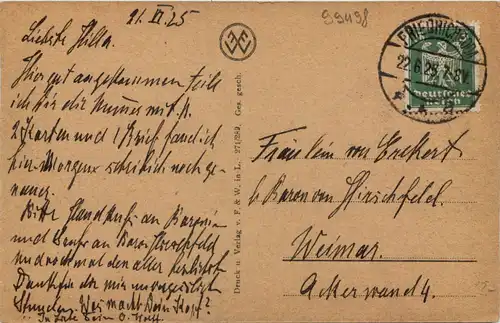 21. VI. 25
99498
Liebste Hilla.
Hier gut angekommen teile
ich Dir die Nummer mit
2 Karten und 1 Brief fand ich
hier. Morgen schreib ich noch ge-
nauer.
Bitte Handkuss an Baronin
und Gruss an Baron Hirschfeld
und nochmal den allerherzlichsten
Dank für die mir unvergesslichen
Stunden. Was macht Dein Kopf?
In Liebe Dein
Druck u. Verlag v. F. & W. in L. 271/289. Ges. gesch.
FRIEDRICHRODA
22.6.25. 7-8V.
Deutsches
Reich
Fräulein von Eckert
b. Baron von Hirschfeld.
Weimar.
Ackerwand 4.